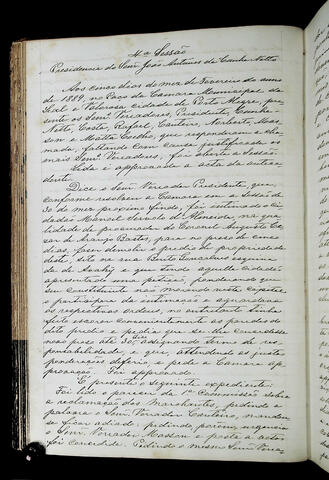 4ª Sessão
Presidencia do Senr João Antunes da Cunha Netto
Aos onze dias do mez de Fevereiro do anno
de 1889, no Paço da Camara Municipal da
Leal e Valorosa cidade de Porto Alegre, pre-
sente os Senrs Vereadores, Presidente, Cunha
Netto, Costa, Rafael, Canteiro, Noriberto, Mas-
son e Motta Coelho, que responderam á cha-
mada, faltando com causa justificada os
mais Senrs Vereadores, foi aberta a sessão.
Lida é approvada a acta da antece-
dente.
Disse o Senr Vereador Presidente, que,
conforme resolveu a Camara em a sessão de
30 do mez proximo findo, foi intimado o ci-
dadão Manoel Servulo de Almeida, na qua-
lidade de procurador do Coronel Augusto Ce-
sar de Araujo Bastos, para no praso de
dias, fazer demolir o predio de propriedade
deste, sito na rua Bento Gonçalves esquina
da de e que sendo aquelle cidadão
apresentado uma petição, ponderando que
seu constituinte não morando nesta capital,
o participara da intimação e aguardava
as respectivas ordens, no entretanto tinha
feito escorar convenientemente as paredes do
dito predio e pedia que se lhe concedesse
esse praso até 30 dias assignando termo de res-
ponsabilidade, e que, attendendo as justas
ponderações deferio e pede a Camara ap-
provação. Foi approvado.
É presente o seguinte expediente:
Foi lido o parecer da 1ª Commissão sobre
a reclamação dos Marchantes, pedindo a
palavra o Senr Vereador Canteiro, mandou-
se ficar adiado; pedindo, porém, urgencia
o Senr Vereador Masson e posta a votos
foi concedida. Pedindo o mesmo Senr Verea-